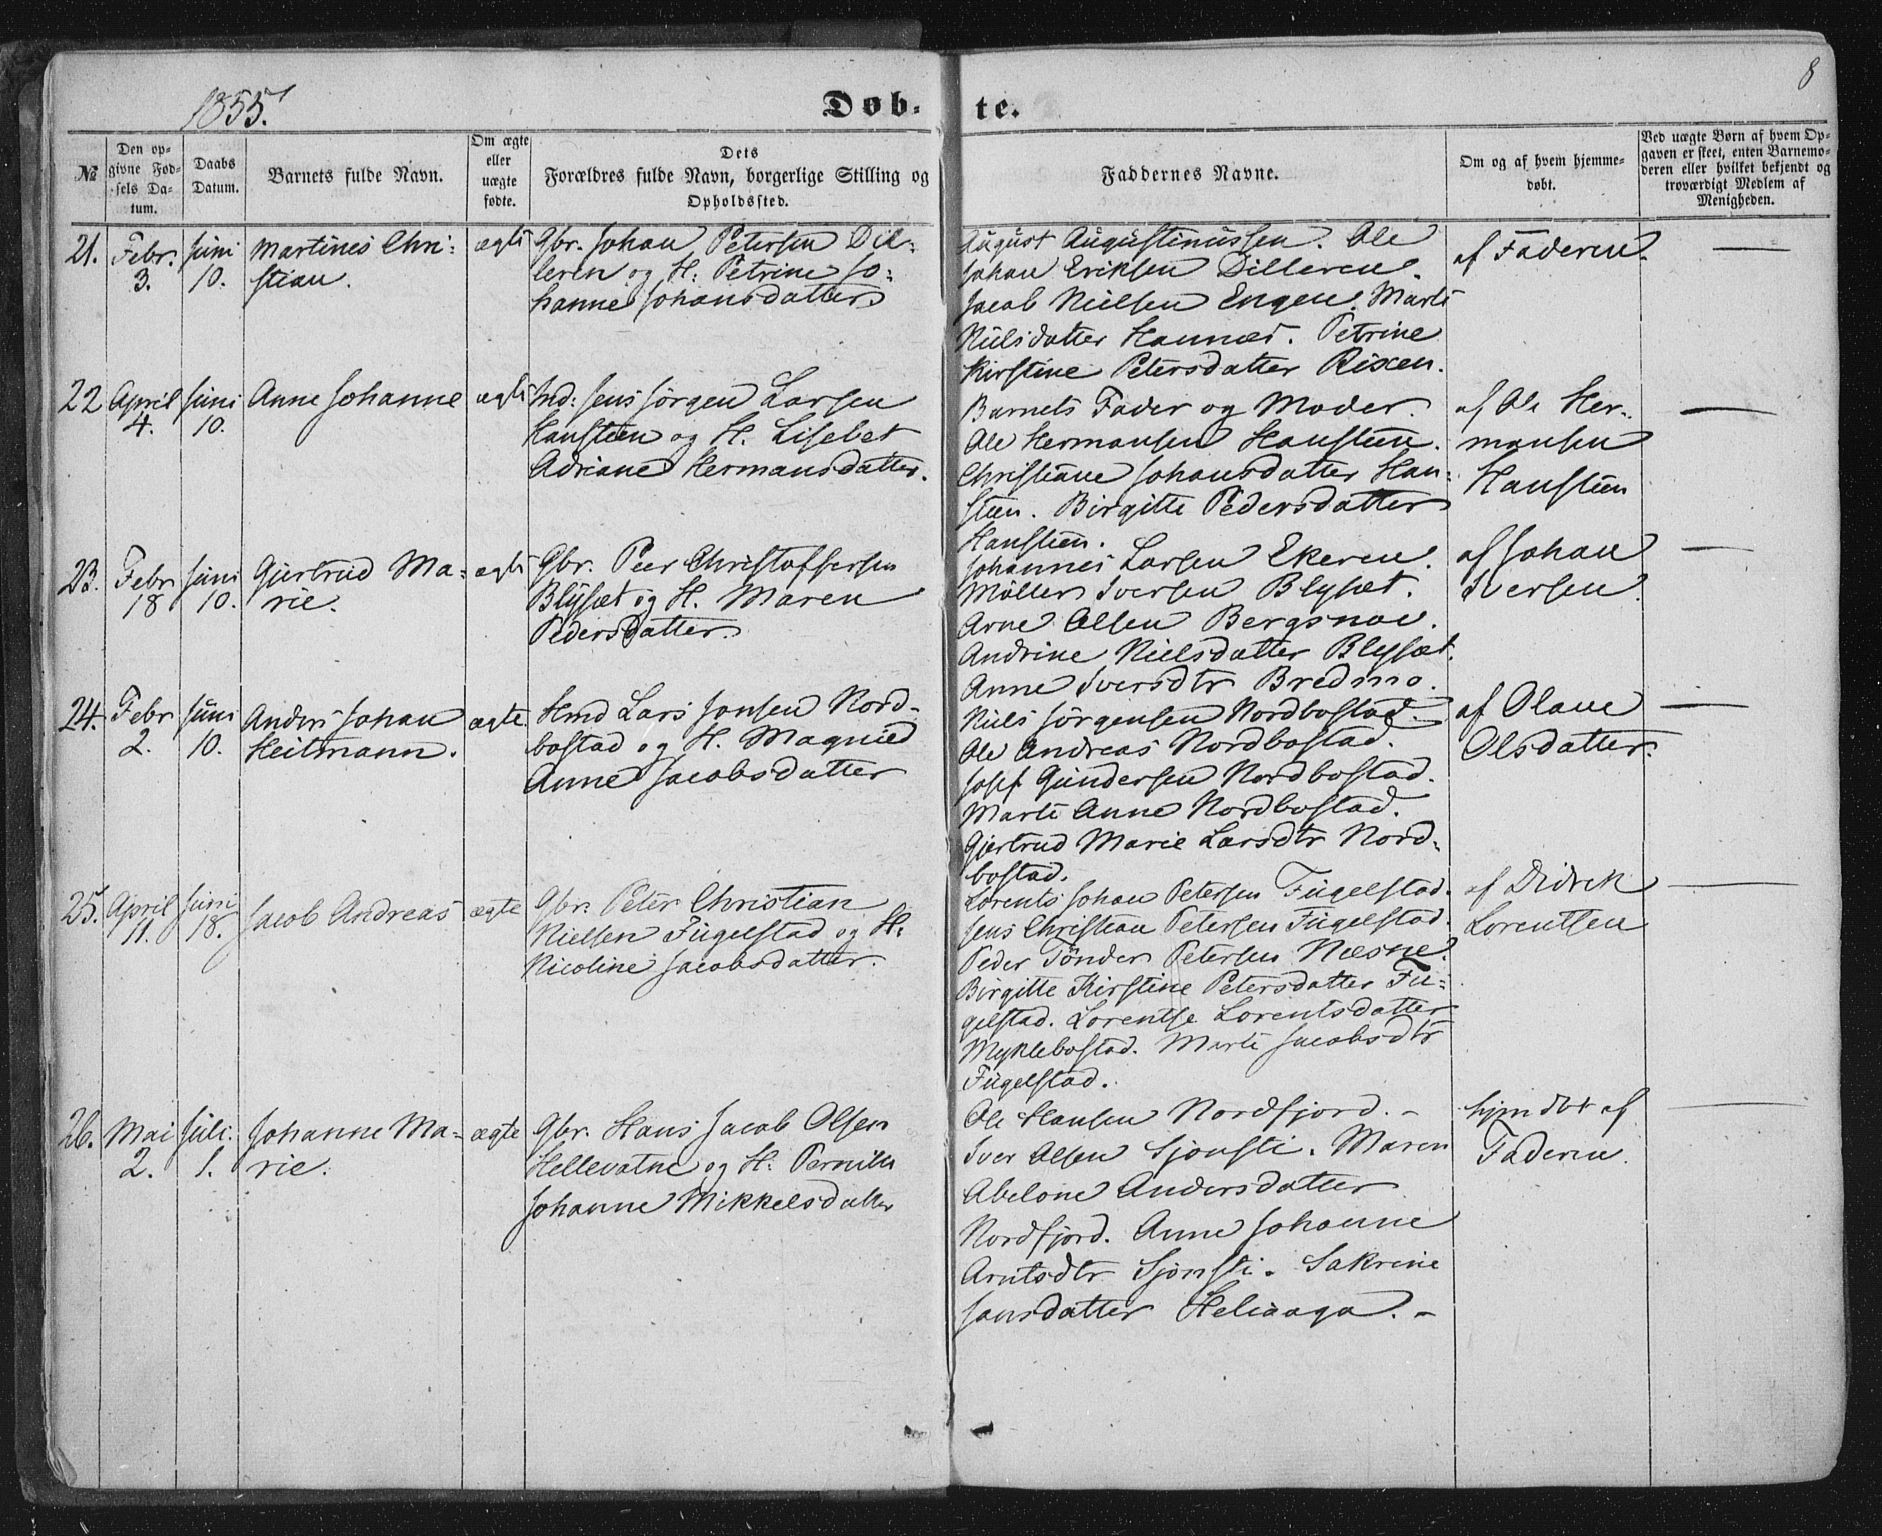 1855.
Døb-
te.
8
№
Den op-
givne Fød-
sels Da-
tum.
Daabs
Datum.
Barnets fulde Navn.
Om ægte
eller
uægte
fødte.
Dets
Forældres fulde Navn, borgerlige Stilling og
Opholdssted.
Faddernes Navne.
Om og af hvem hjemme-
døbt.
Ved uægte Børn af hvem Op-
gaven er skeet, enten Barnemo-
deren eller hvilket bekjendt og
troværdigt Medlem af
Menigheden.
21.
Febr.
3.
Juni
10.
Martines Chri-
stian.
ægte
Gbr. Johan Petersen Dil-
leren og H: Petrine Jo-
hanne Johansdatter
August Augustinussen. Ole
Johan Eriksen Dilleren.
Jacob Nielsen Engen. Marte
Nielsdatter Hannæs. Petrine
Kirstine Petersdatter Rixen.
af Faderen.
22
April
4.
Juni
10.
Anne Johanne
ægte
Ind: Jens Jørgen Larsen
Hansteen og H. Lisebet
Adriane Hermansdatter.
Barnets Fader og Moder.
Ole Hermansen Hansteen.
Christiane Johansdatter Han-
steen. Birgitte Pedersdatter
Hansteen.
af Ole Her-
mansen
Hansteen
23.
Febr
18
Juni
10.
Gjertrud Ma-
rie.
ægte
Gbr. Peer Christoffersen
Blysæt og H. Maren
Pedersdatter.
Johannes Larsen Ekeren.
Møller Iversen Blysæt.
Arne Olsen Bergsnov.
Andrine Nielsdatter Blysæt.
Anne Iversdtr Bredmo.
af Johan
Iversen.
24.
Febr
2.
Juni
10.
Anders Johan
Heitmann.
ægte
Hmd Lars Jonsen Nord-
bostad og H. Magnild
Anne Jacobsdatter
Niels Jørgensen Nordbostad.
Ole Andreas Nordbostad.
Josef Gundersen Nordbostad.
Marte Anne Nordbostad.
Gjertrud Marie Larsdtr Nord-
bostad.
af Olave
Olsdatter.
25.
April
11.
Juni
18.
Jacob Andreas
ægte
Gbr. Peter Christian
Nielsen Fugelstad og H:
Nicoline Jacobsdatter.
Lorents Johan Petersen Fugelstad.
Jens Christian Petersen Fugelstad.
Peder Tønder Petersen Næsne.
Birgitte Kirstine Petersdatter Fu-
gelstad. Lorentse Lorentsdatter
Myklebostad. Merte Jacobsdtr
Fugelstad.
af Didrik
Lorentsen
26.
Mai
2.
Juli.
1.
Johanne Ma-
rie.
ægte
Gbr. Hans Jacob Olsen
Hellevatne og H: Pernille
Johanne Mikkelsdatter
Ole Hansen Nordfjord. -
Iver Olsen Sjonsti. Maren
Abelone Andersdatter
Nordfjord. Anne Johanne
Arntsdtr Sjonsti. Sakrine
Jansdatter Heliaaga. -
hjmdbt af
Faderen.